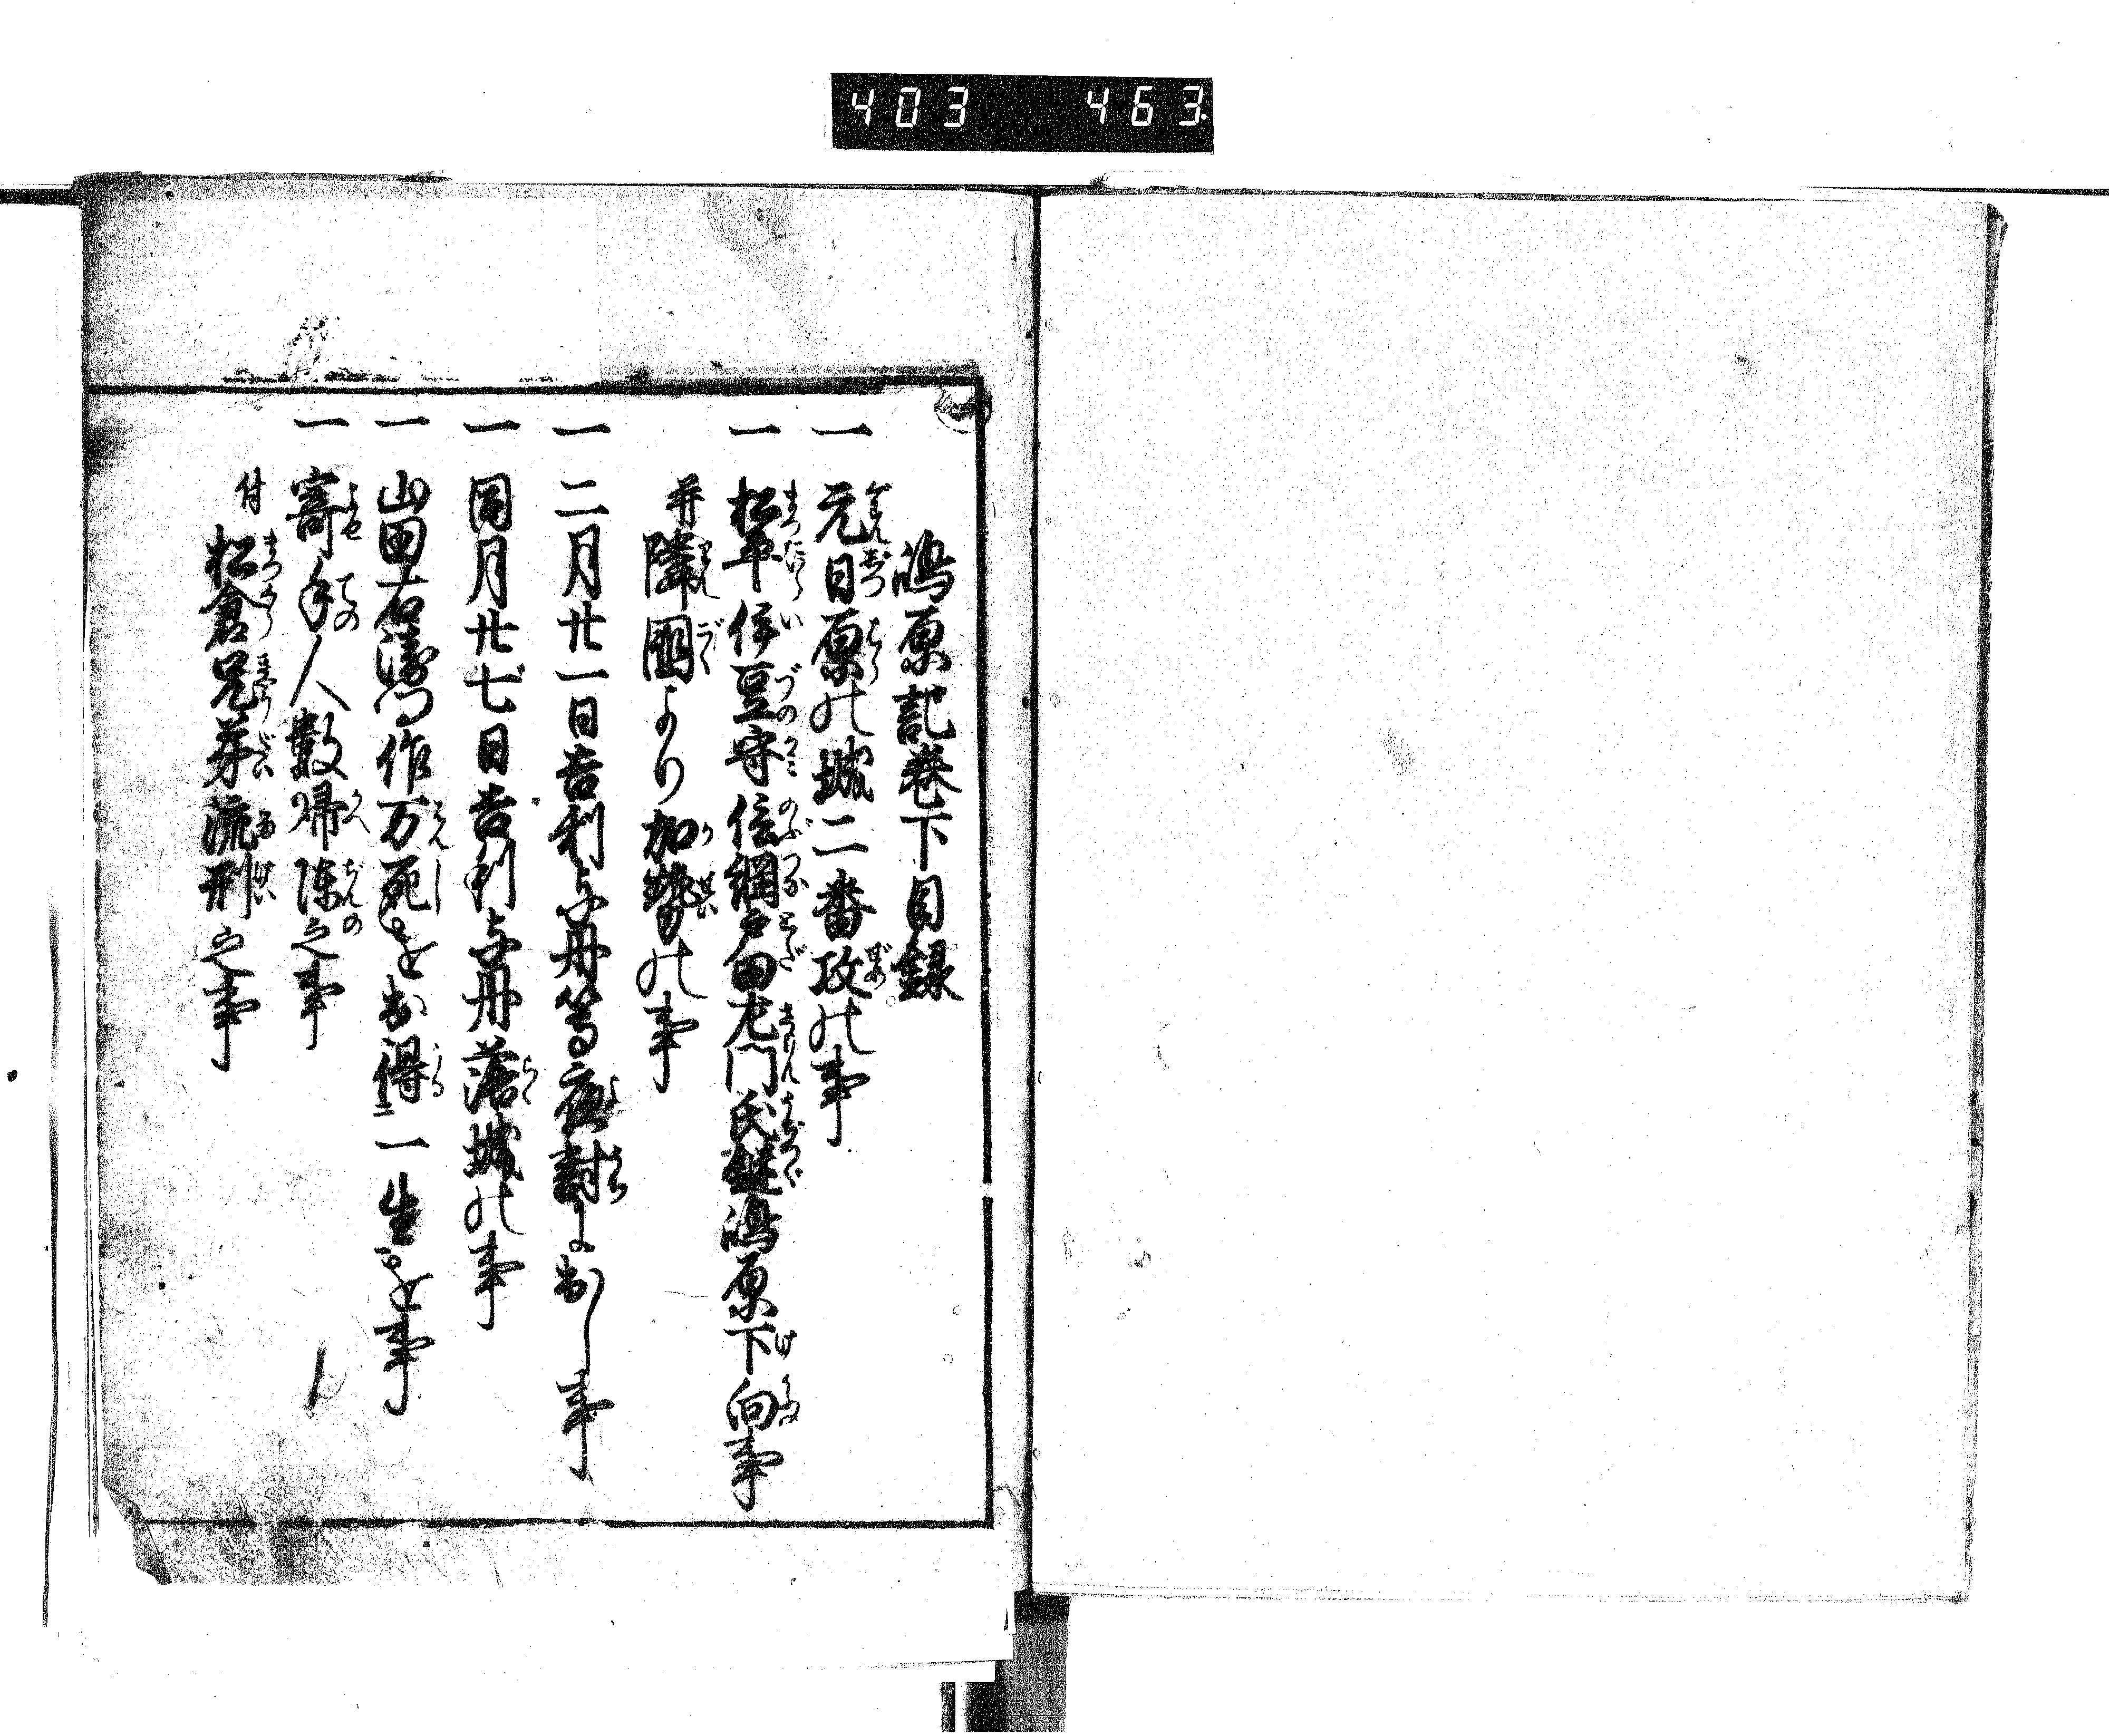 403 463
嶋原記巻下目録
一 元日原の城二番攻の事
一 松平伊豆守信綱戸田左門氏鉄嶋原下向事
并隣国より加勢の事
一 二月廿一日吉利支丹等夜討に出し事
一 同月廿七日吉利支丹落城の事
一 山田右衛門作万死を出得一生を事
一 寄手人数帰陣之事
付 松倉兄弟流刑之事